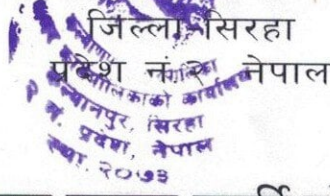 जिल्ला सिरहा
प्रदेश नं. २ नेपाल
कार्यालय
सिरहा
२ नं. प्रदेश, नेपाल
स्था. २०७३